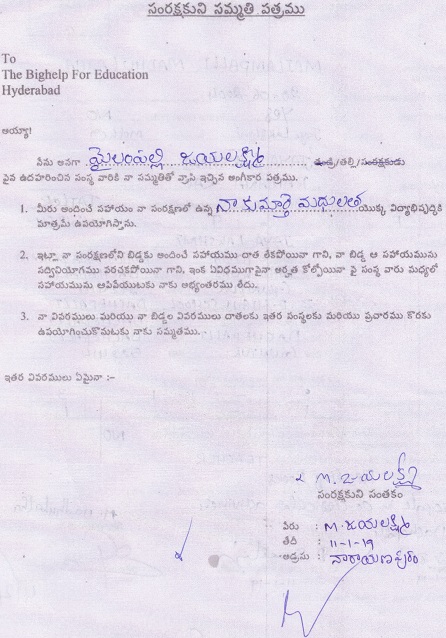 సంరక్షకుని సమ్మతి పత్రము
To
The Bighelp For Education
Hyderabad
అయ్యా!
నేను అనగా మైలంపల్లి జయలక్ష్మి తండ్రి/తల్లి/సంరక్షకుడు
పైన ఉదహరించిన సంస్థ వారికి నా సమ్మతితో వ్రాసి ఇచ్చిన అంగీకార పత్రము.
1. మీరు అందించే సహాయం నా సంరక్షణలో ఉన్న నా కుమార్తె మధులత యొక్క విద్యాభివృద్ధికి
మాత్రమే ఉపయోగిస్తాను.
2. ఇట్లా నా సంరక్షణలోని బిడ్డకు అందించే సహాయము దాత లేకపోయినా గాని, నా బిడ్డ ఆ సహాయమును
సద్వినియోగము పరచకపోయినా గాని, ఇంక ఏవిధముగానైనా అర్హత కోల్పోయినా పై సంస్థ వారు మధ్యలో
సహాయమును ఆపివేయుటకు నాకు అభ్యంతరము లేదు.
3. నా వివరములు మరియు నా బిడ్డల వివరములు దాతలకు ఇతర సంస్థలకు మరియు ప్రచారము కొరకు
ఉపయోగించుకొనుటకు నాకు సమ్మతము.
ఇతర వివరములు ఏమైనా :-
M. జయలక్ష్మి
సంరక్షకుని సంతకం
పేరు : M. జయలక్ష్మి
తేది : 11-1-19
అడ్రసు : నారాయణపురం